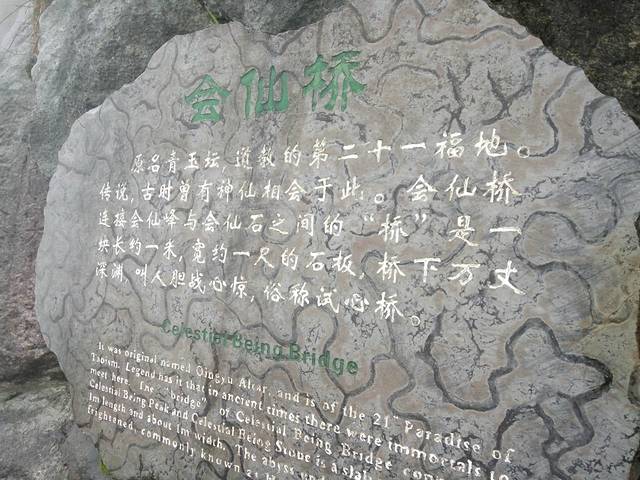 会仙桥
原名青玉坛，道教的第二十一福地。
传说，古时曾有神仙相会于此。会仙桥
连接会仙峰与会仙石之间的“桥”是一
块长约一米，宽约一尺的石板，桥下万丈
深渊，叫人胆战心惊，俗称试心桥。
Celestial Being Bridge
It was original named Qingyu Altar, and is of the 21st Paradise of
Taoism. Legend has it that in ancient times there were immortals to
meet here. The "bridge" of Celestial Being Bridge
Celestial Being Peak and Celestial Being Stone is a slab
1m length and about 1m width. The abyss
frightened, commonly known